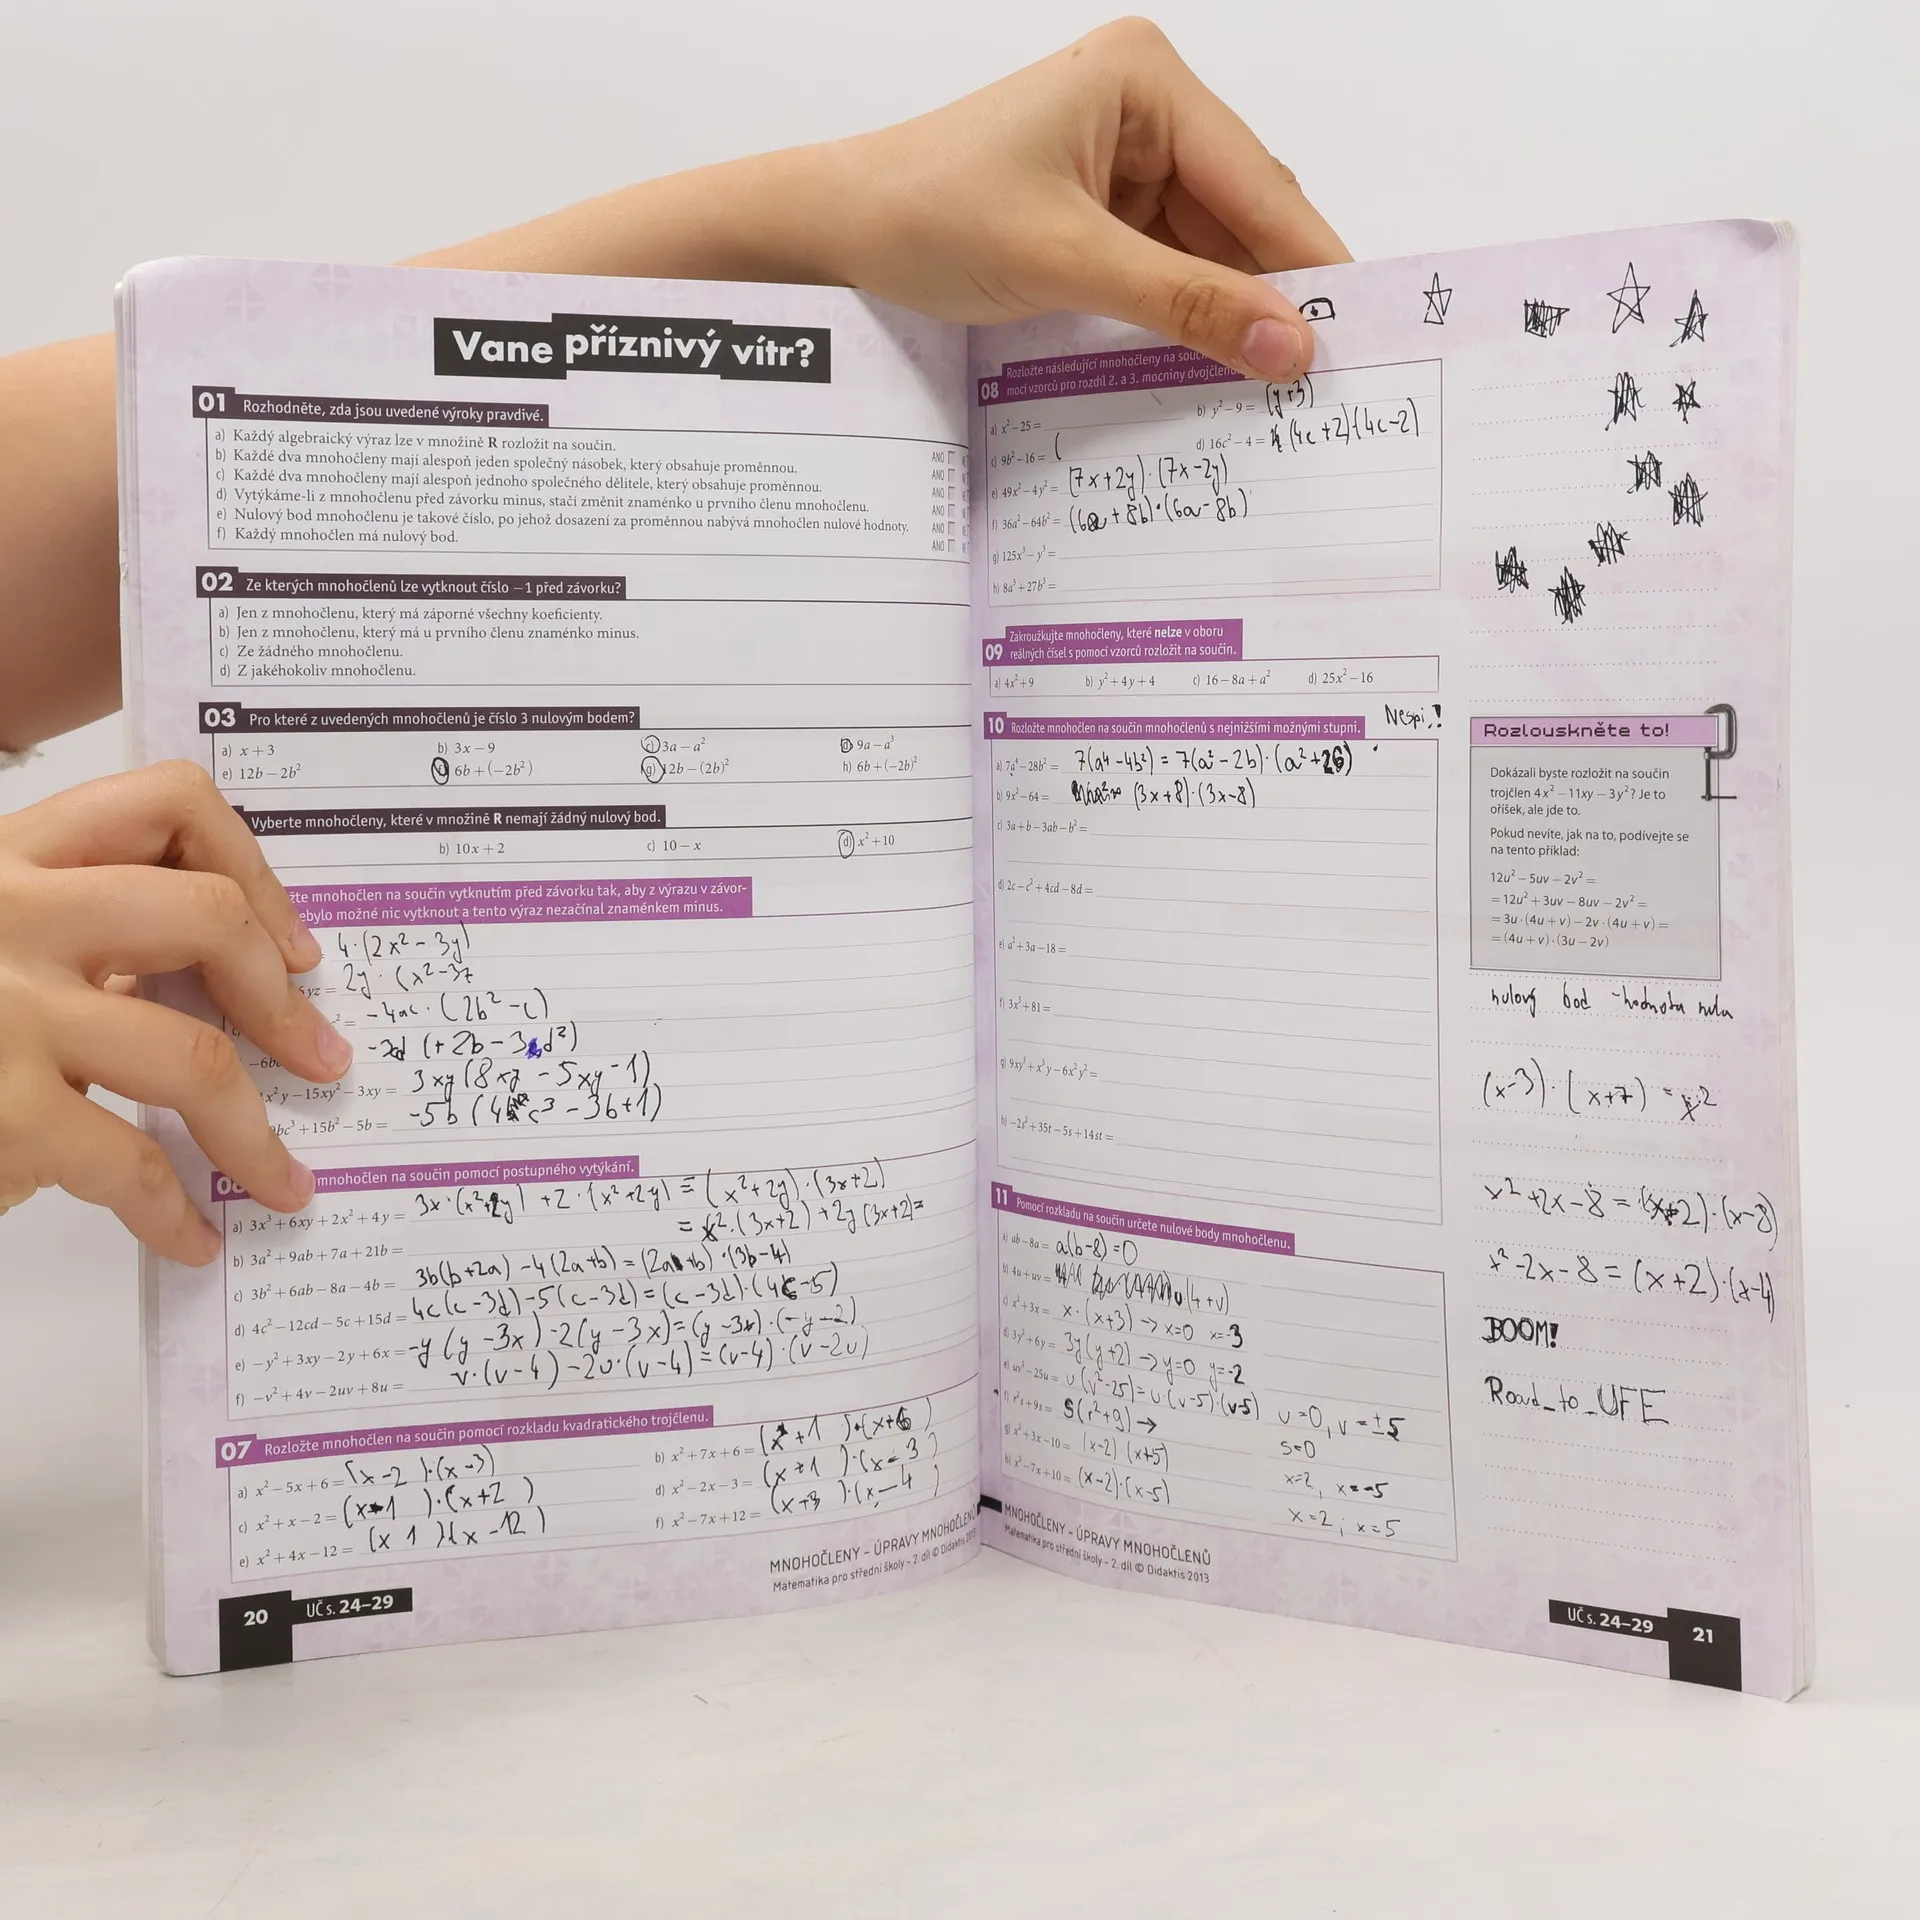 Vane příznivý vítr?
01 Rozhodněte, zda jsou uvedené výroky pravdivé.
a) Každý algebraický výraz lze v množině R rozložit na součin.
b) Každé dva mnohočleny mají alespoň jeden společný násobek, který obsahuje proměnnou. ANO
c) Každé dva mnohočleny mají alespoň jednoho společného dělitele, který obsahuje proměnnou. ANO
d) Vytýkáme-li z mnohočlenu před závorku minus, stačí změnit znaménko u prvního členu mnohočlenu. ANO
e) Nulový bod mnohočlenu je takové číslo, po jehož dosazení za proměnnou nabývá mnohočlen nulové hodnoty. ANO
f) Každý mnohočlen má nulový bod. ANO
ANO
02 Ze kterých mnohočlenů lze vytknout číslo −1 před závorku?
a) Jen z mnohočlenu, který má záporné všechny koeficienty.
b) Jen z mnohočlenu, který má u prvního členu znaménko minus.
c) Ze žádného mnohočlenu.
d) Z jakéhokoliv mnohočlenu.
03 Pro které z uvedených mnohočlenů je číslo 3 nulovým bodem?
a) x + 3 b) 3x − 9 c) 3a − a² d) 9a − a³
e) 12b − 2b² f) 6b + (−2b²) g) 12b − (2b)² h) 6b + (−2b)²
Vyberte mnohočleny, které v množině R nemají žádný nulový bod.
b) 10x + 2 c) 10 − x d) x² + 10
žte mnohočlen na součin vytknutím před závorku tak, aby z výrazu v závor-
ebylo možné nic vytknout a tento výraz nezačínal znaménkem minus.
4·(2x² − 3y)
yz = 2y·(x² − 3z
² = −4ac·(2b² − c)
−6b (+2b − 3 d²)
x²y − 15xy² − 3xy = 3xy(8xz − 5xy − 1)
bc³ + 15b² − 5b = −5b(4 c³ − 3b + 1)
mnohočlen na součin pomocí postupného vytýkání.
a) 3x³ + 6xy + 2x² + 4y = 3x·(x²+2y) + 2·(x²+2y) = (x²+2y)·(3x+2)
= x²·(3x+2) + 2y(3x+2) =
b) 3a² + 9ab + 7a + 21b =
c) 3b² + 6ab − 8a − 4b = 3b(b+2a) − 4(2a+b) = (2a+b)·(3b−4)
d) 4c² − 12cd − 5c + 15d = 4c(c−3d) − 5(c−3d) = (c−3d)·(4c−5)
e) −y² + 3xy − 2y + 6x = −y(y−3x) − 2(y−3x) = (y−3x)·(−y−2)
f) −v² + 4v − 2uv + 8u = v·(v−4) − 2u·(v−4) = (v−4)·(v−2u)
07 Rozložte mnohočlen na součin pomocí rozkladu kvadratického trojčlenu.
a) x² − 5x + 6 = (x−2)·(x−3) b) x² + 7x + 6 = (x+1)·(x+6)
c) x² + x − 2 = (x−1)·(x+2) d) x² − 2x − 3 = (x+1)·(x−3)
e) x² + 4x − 12 = (x 1)(x −12) f) x² − 7x + 12 = (x+3)·(x−4)
MNOHOČLENY – ÚPRAVY MNOHOČLENŮ
Matematika pro střední školy – 2. díl © Didaktis 2013
20 UČ s. 24–29
08 Rozložte následující mnohočleny na souč
mocí vzorců pro rozdíl 2. a 3. mocniny dvojčlenu
a) x² − 25 = b) y² − 9 = (y+3)
c) 9b² − 16 = ( d) 16c² − 4 = (4c+2)(4c−2)
e) 49x² − 4y² = (7x+2y)·(7x−2y)
f) 36a² − 64b² = (6a+8b)·(6a−8b)
g) 125x³ − y³ =
h) 8a³ + 27b³ =
09 Zakroužkujte mnohočleny, které nelze v oboru
reálných čísel s pomocí vzorců rozložit na součin.
a) 4x² + 9 b) y² + 4y + 4 c) 16 − 8a + a² d) 25x² − 16
10 Rozložte mnohočlen na součin mnohočlenů s nejnižšími možnými stupni. Nespi!
a) 7a⁴ − 28b² = 7(a⁴ − 4b²) = 7(a² − 2b)·(a² + 2b)
b) 9x² − 64 = (3x+8)·(3x−8)
c) 3a + b − 3ab − b² =
d) 2c − c² + 4cd − 8d =
e) a² + 3a − 18 =
f) 3x³ + 81 =
g) 9xy³ + x³y − 6x²y² =
h) −2s² + 35t − 5s + 14st =
11 Pomocí rozkladu na součin určete nulové body mnohočlenu.
a) ab − 8a = a(b−8) = 0
b) 4u + uv = u(4+v)
c) x² + 3x = x·(x+3) → x=0 x=−3
d) 3y² + 6y = 3y(y+2) → y=0 y=−2
e) uv² − 25u = u(v²−25) = u·(v−5)·(v−5) u=0, v=±5
f) r²s + 9s = s(r²+9) → s=0
g) x² + 3x − 10 = (x−2)(x+5) x=2, x=−5
h) x² − 7x + 10 = (x−2)·(x−5) x=2; x=5
MNOHOČLENY – ÚPRAVY MNOHOČLENŮ
Matematika pro střední školy – 2. díl © Didaktis 2013
Rozlouskněte to!
Dokázali byste rozložit na součin
trojčlen 4x² − 11xy − 3y²? Je to
oříšek, ale jde to.
Pokud nevíte, jak na to, podívejte se
na tento příklad:
12u² − 5uv − 2v² =
= 12u² + 3uv − 8uv − 2v² =
= 3u·(4u + v) − 2v·(4u + v) =
= (4u + v)·(3u − 2v)
nulový bod - hodnota nula
(x−3)·(x+7) = x²
x² + 2x − 8 = (x+2)·(x−8)
x² − 2x − 8 = (x+2)·(x−4)
BOOM!
Road_to_UFE
UČ s. 24–29 21